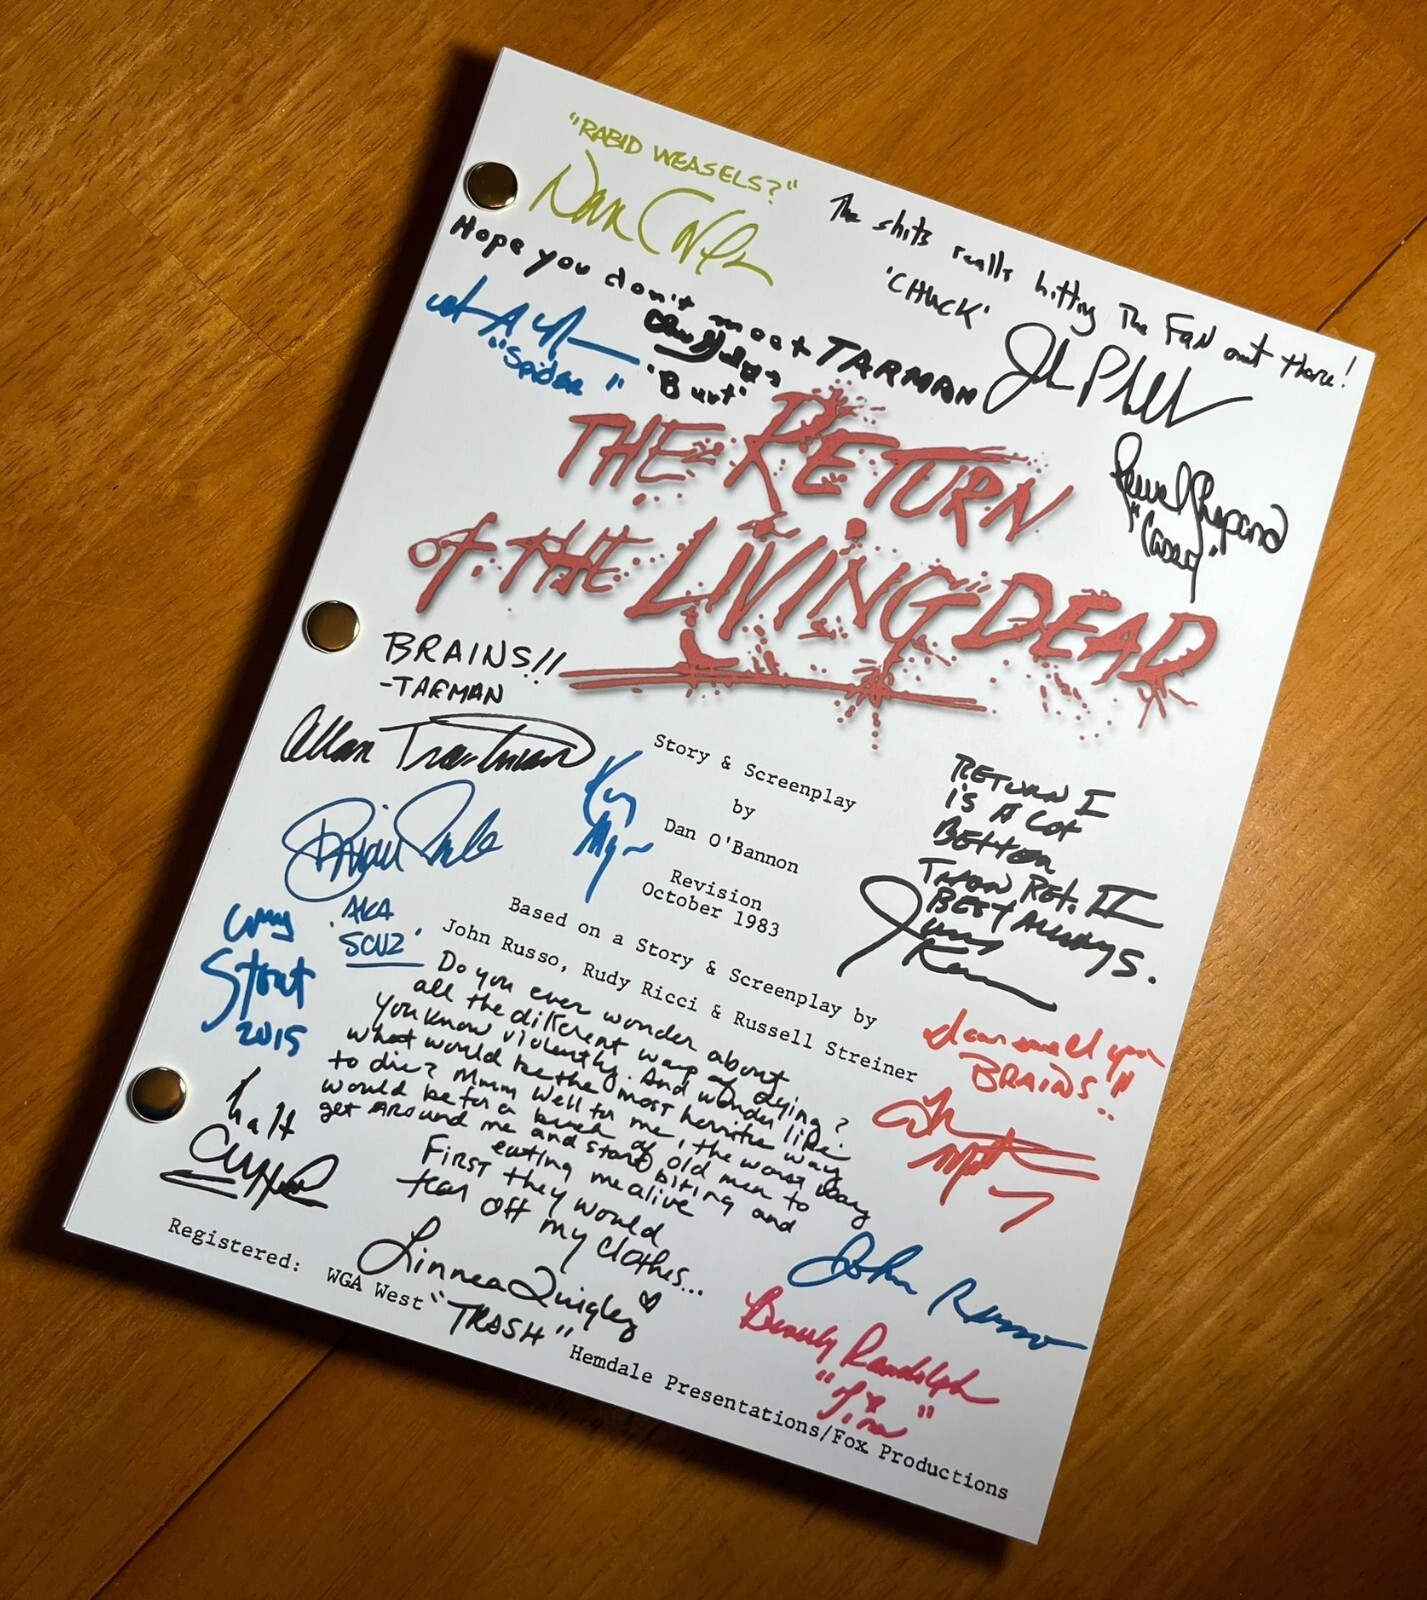 "RABID WEASELS?"
The shits really hitting The FAN out there!
'CHUCK'
Hope you don't meet TARMAN
"Spider"
'Burt'
THE RETURN
of THE LIVING DEAD
Jewel Shepard
"Casey"
BRAINS!!
-TARMAN
Allan Trautman
Story & Screenplay
by
Dan O'Bannon
Revision
October 1983
RETURN I
IS A LOT
BETTER
THAN RET. II
BEST ALWAYS.
James
Karen
Brian Peck
AKA
'SCUZ'
Based on a Story & Screenplay by
John Russo, Rudy Ricci & Russell Streiner
Stout
2015
Do you ever wonder about
all the different ways of dying?
You know violently. And wonder like
what would be the most horrific way
to die? Mmm Well for me, the worst way
would be for a bunch of old men to
get around me and start biting and
eating me alive
First they would
tear off my clothes...
Linnea Quigley
"TRASH"
BRAINS"
half
John Russo
Beverly Randolph
"Tina"
Registered: WGA West
Hemdale Presentations/Fox Productions